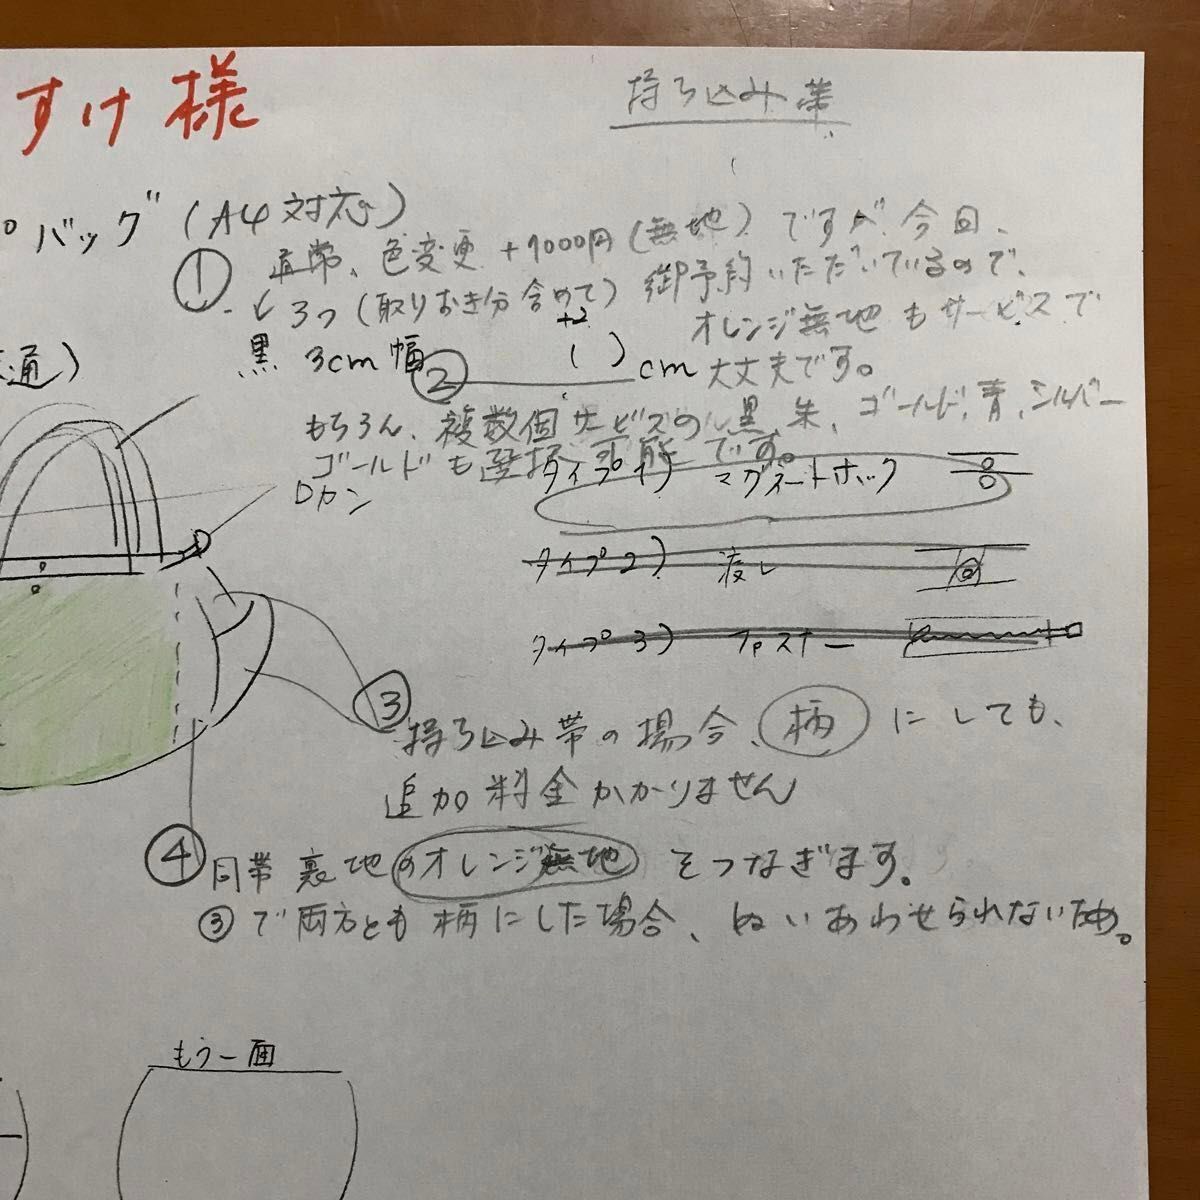 すけ様
持ち込み帯
バッグ(A4対応)
① 通常、色変更 +1000円(無地)ですが、今回、
3つ(取りおき分含めて)御予約いただいているので、
+2
オレンジ無地もサービスで
黒 3cm幅 ② ( )cm 大丈夫です。
通)
もちろん、複数個サービスの、黒、朱、ゴールド、青、シルバー
ゴールドも選択可能です。
タイプ1) マグネットホック
Dカン
タイプ2) 渡し
タイプ3) ファスナー
③ 持ち込み帯の場合、柄にしても、
追加料金かかりません
④ 同帯裏地のオレンジ無地をつなぎます。
③で両方とも柄にした場合、ぬいあわせられないため。
もう一面